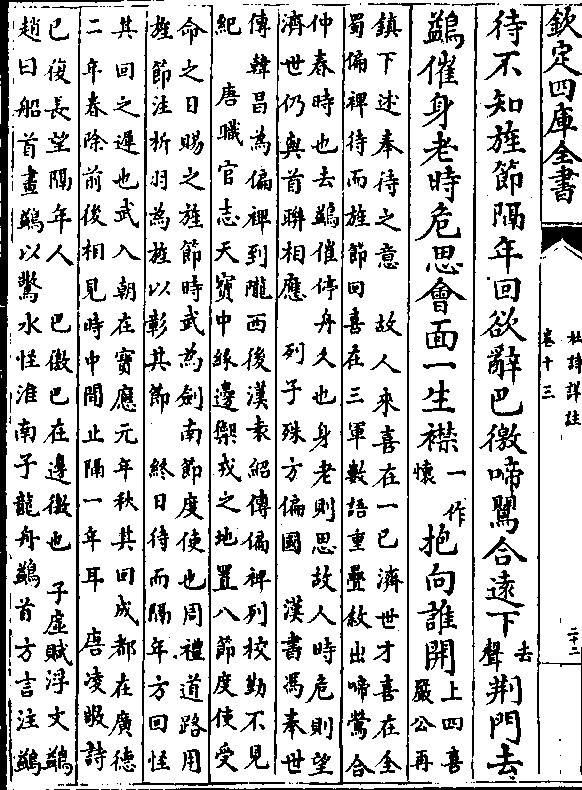 欽定四庫全書
杜詩詳註
卷十三
二十二
待不知旌節隔年回欲辭巴徼啼鶯合遠下去聲荆門去
鷁催身老時危思會面一生襟一作懷抱向誰開上四喜嚴公再
鎮下述奉待之意 故人來喜在一已濟世才喜在全
蜀偏裨待而旌節回喜在三軍數語重疊敘出啼鶯合
仲春時也去鷁催停舟久也身老則思故人時危則望
濟世仍與首聯相應 列子殊方偏國 漢書馮奉世
傳韓昌為偏裨到隴西後漢袁紹傳偏裨列校勤不見
紀 唐職官志天寶中緣邊禦戎之地置八節度使受
命之日賜之旌節時武為劍南節度使也周禮道路用
旌節注析羽為旌以彰其節 終日待而隔年方回怪
其回之遲也武入朝在寶應元年秋其回成都在廣德
二年春除前後相見時中間止隔一年耳 唐凌敬詩
已復長望隔年人 巴徼巴在邊徼也 子虛賦浮文鷁
趙曰船首畫鷁以驚水怪淮南子龍舟鷁首方言注鷁